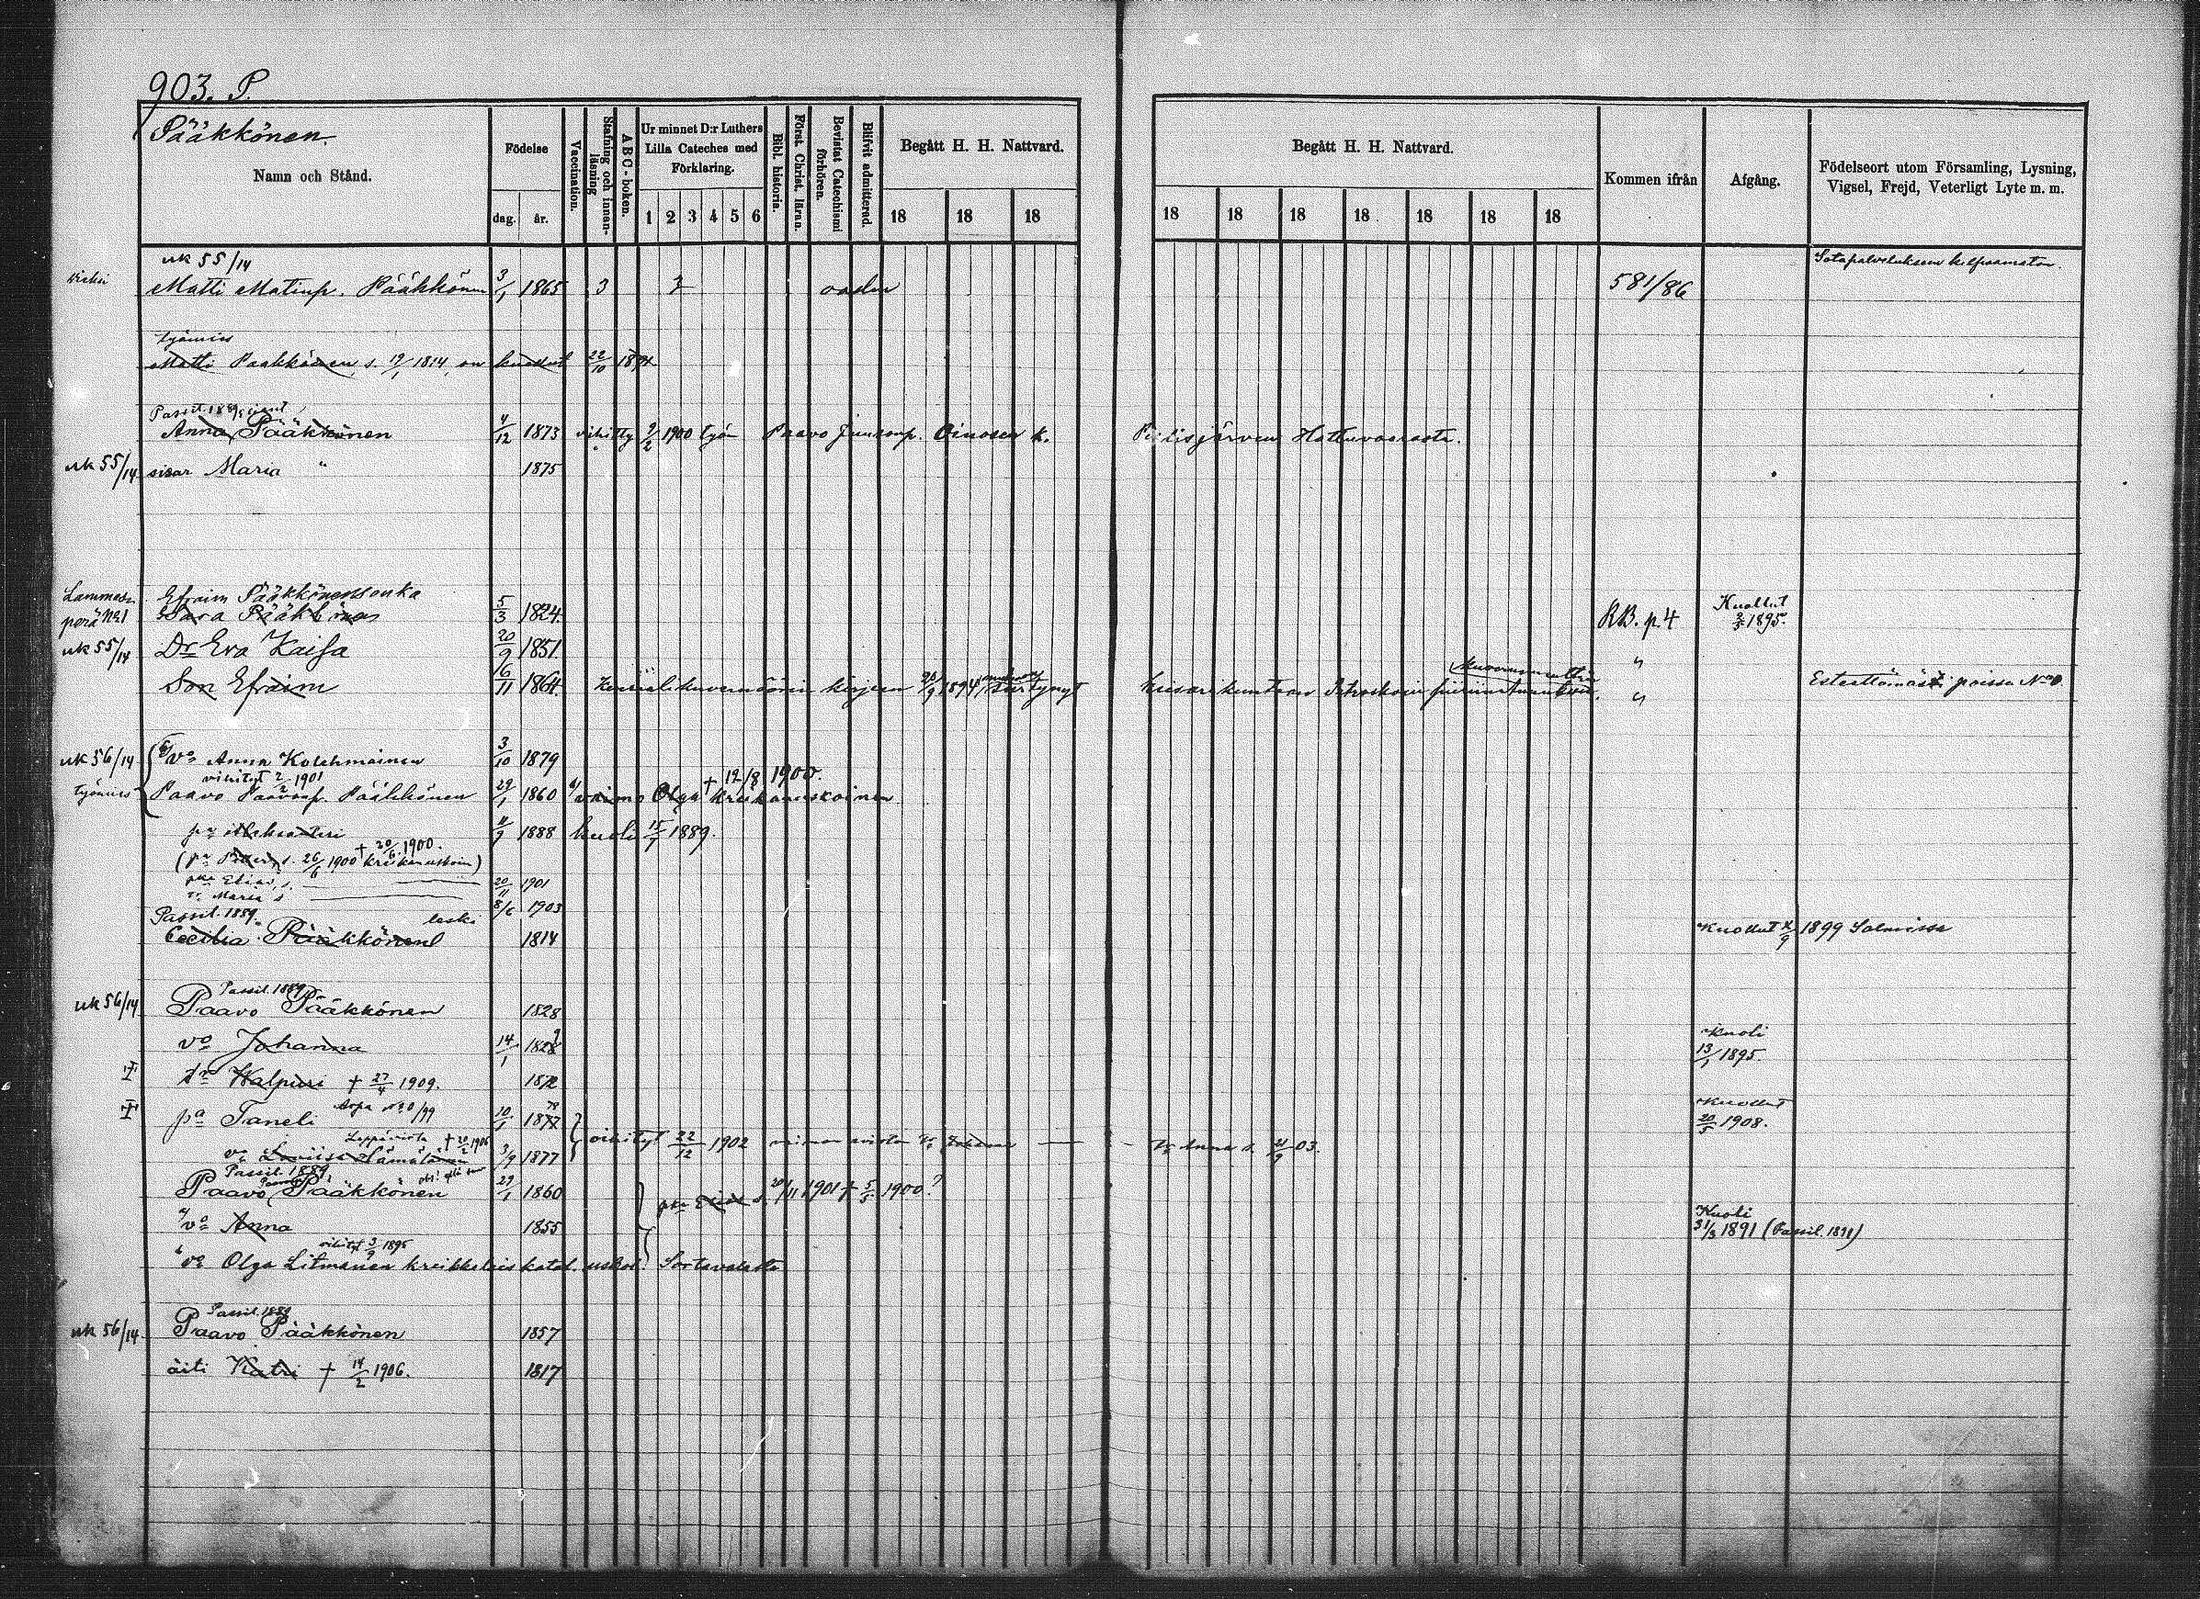 903. P.
Pääkkönen.
Namn och Stånd.
Födelse
dag. år.
Vaccination.
Stafning och innanläsning
A B C - boken.
Ur minnet D:r Luthers Lilla Cateches med Förklaring.
1 2 3 4 5 6
Bibl. historia.
Först. Christ. läran.
Bevistat Catechismi förhören.
Blifvit admitterad.
Begått H. H. Nattvard.
18 18 18
Begått H. H. Nattvard.
18 18 18 18 18 18 18
Kommen ifrån
Afgång.
Födelseort utom Församling, Lysning, Vigsel, Frejd, Veterligt Lyte m. m.
uk 55/14
Matti Matinp. Pääkkönen 3/1 1865 3 581/86 Sotapalvelukseen kelpaamaton
työmies
Matti Pääkkönen, s. 19/1 1814, on kuollut 22/10
Passit. 1889
Anna Pääkkönen 4/12 1873 vihitty 9/2 1900 työm Paavo Oinosen k. Pielisjärven Hattuvaarasta.
uk 55/14 sisar Maria " 1875
Lammasperä No1
Efraim Pääkkösen leski
Sara Pääkkönen 5/3 1824. RB. p. 4 Kuollut 1895.
uk 55/14 Dr Eva Kaisa 20/9 1851. "
Son Efraim 16/11 1864. kuvernöörin kirjeen 1894 siirtynyt " Esteettömästi poissa No 0.
uk 56/14 b/vo Anna Kolehmainen 3/10 1879
vihityt 2/2 1901
työmies Paavo Paavonp. Pääkkönen 29/1 1860 a/vaimo Olga kreikanuskoinen † 12/8 1900.
pa Aleksanteri 4/9 1888 kuoli 15/7 1889.
s. 26/6 1900 kreikanuskoin) † 30/6 1900.
pka Elias, s. 20/11 1901
Maria s 8/6 1903
Passit. 1889. leski
Cecilia Pääkkönen 1814 Kuollut 1899 Salmissa
Passit. 1889
uk 56/14 Paavo Pääkkönen 1828
vo Johanna 14/1 1828 Kuoli 13/1 1895
tr Walpuri † 27/4 1909.
pa Taneli 10/1 Kuollut 20/5 1908.
vihityt 22/12 1902
vo Loviisa Hämäläinen 3/9 1877 Anna s. 21/9 03.
Passit. 1889
Paavo Pääkkönen 29/1 1860 pka Elias s. 20/11 1901 † 5/5 1900?
a/vo Anna 1855 Kuoli 31/3 1891 (Passit. 1891)
vihityt 3/9 1895
b/vo Olga Litmanen kreikkalais katol. uskoi. Sortavalasta
Passit. 1889
uk 56/14 Paavo Pääkkönen 1857
äiti Katri † 14/2 1906. 1817